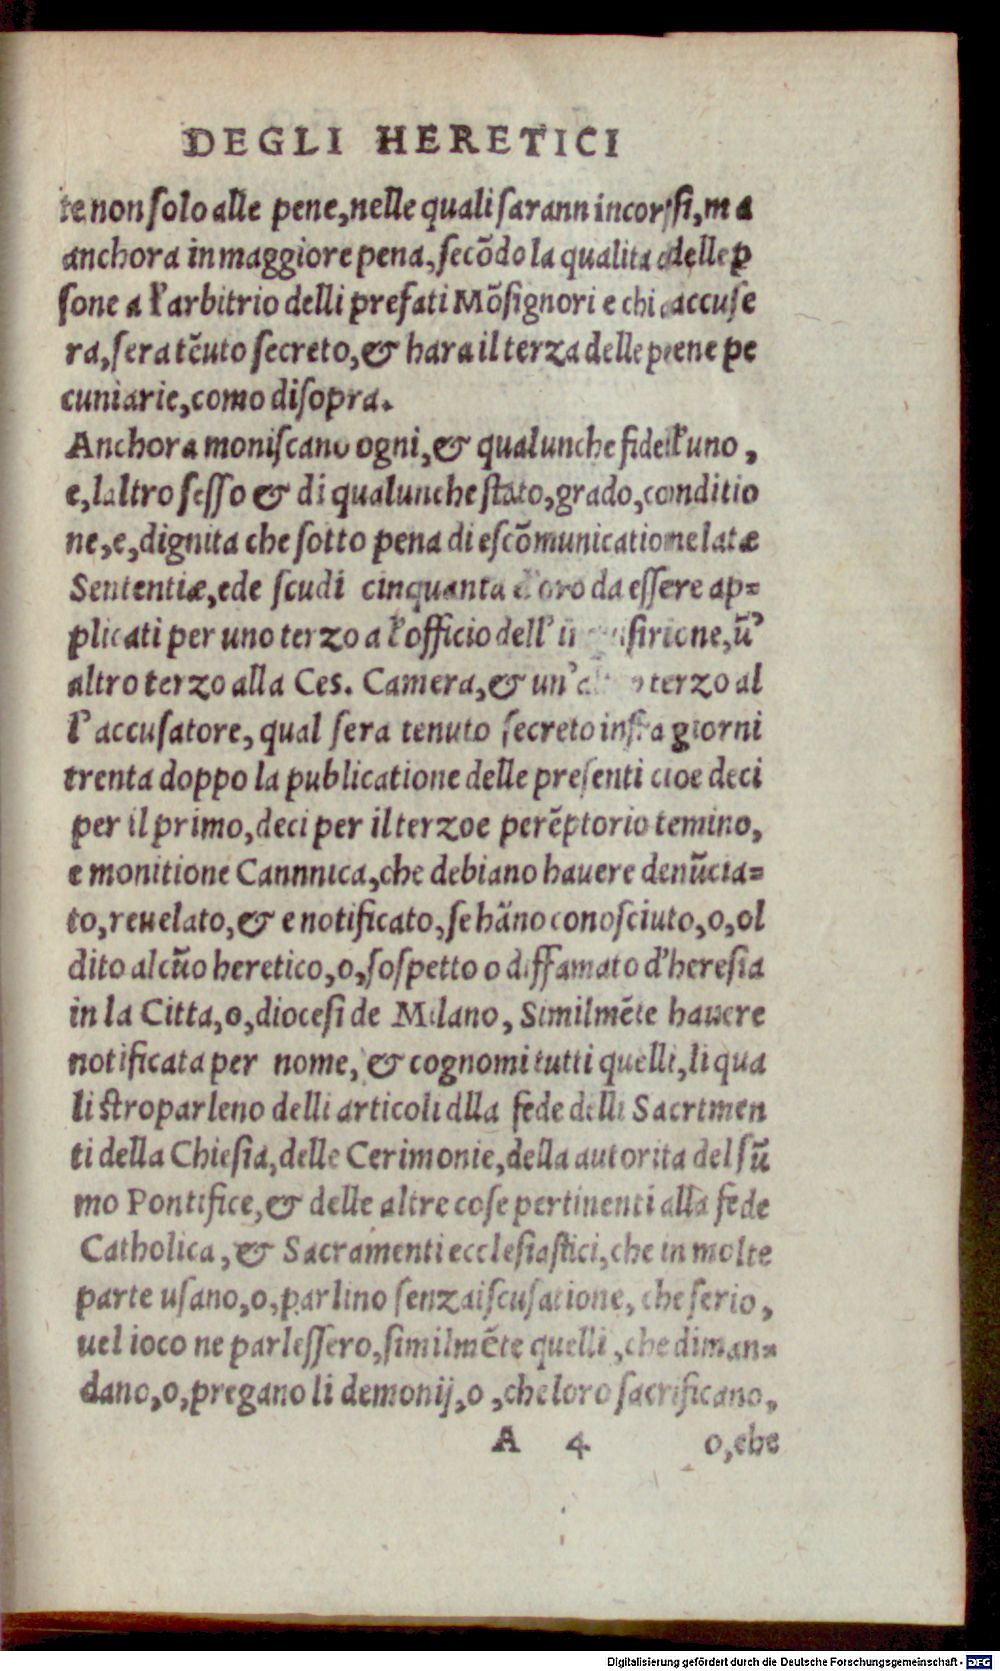 DEGLI HERETICI
te non solo alle pene, nelle quali sarann incorsi, ma
anchora in maggiore pena, secōdo la qualita delle ꝑ
sone a l'arbitrio delli prefati Mōsignori e chi accuse
ra, sera tēuto secreto, & hara il terza delle pene pe
cuniarie, como disopra.
Anchora moniscano ogni, & qualunche fidel l'uno,
e, laltro sesso & di qualunche stato, grado, conditio
ne, e, dignita che sotto pena di escōmunicatione latæ
Sententiæ, ede scudi cinquanta d'oro da essere ap=
plicati per uno terzo a l'officio dell' ū'
altro terzo alla Ces. Camera, & un' terzo al
l'accusatore, qual sera tenuto secreto infra giorni
trenta doppo la publicatione delle presenti cioe deci
per il primo, deci per il terzo e perēptorio temino,
e monitione Cannnica, che debiano hauere denūcia=
to, reuelato, & e notificato, se hāno conosciuto, o, ol
dito alcūo heretico, o, sospetto o diffamato d'heresia
in la Citta, o, diocesi de Milano, Similmēte hauere
notificata per nome, & cognomi tutti quelli, li qua
li stroparleno delli articoli dlla fede delli Sacrimen
ti della Chiesia, delle Cerimonie, della autorita del sū
mo Pontifice, & delle altre cose pertinenti alla fede
Catholica, & Sacramenti ecclesiastici, che in molte
parte usano, o, parlino senza iscusatione, che serio,
uel ioco ne parlessero, similmēte quelli, che diman=
dano, o, pregano li demonij, o, che loro sacrificano,
A 4 o, che
Digitalisierung gefördert durch die Deutsche Forschungsgemeinschaft - DFG